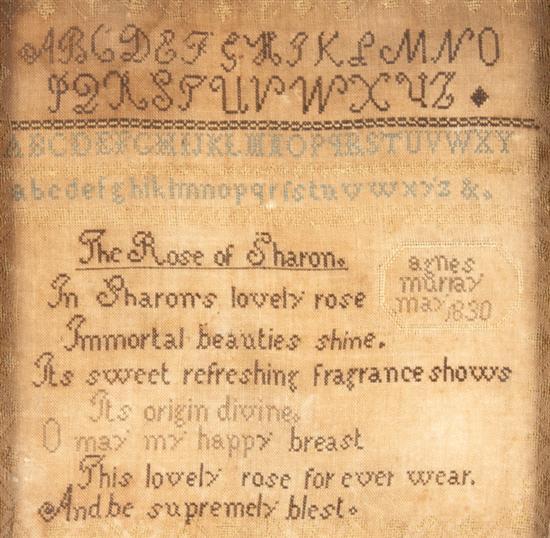 ABCDEFGHIKLMNO
PQRSTUVWXYZ
ABCDEFGHIJKLMNOPQRSTUVWXY
abcdefghIklmnopqrſstuvwxyz &.
The Rose of Sharon.
agnes
murray
may 1830
In Sharon's lovely rose
Immortal beauties shine.
Its sweet refreshing fragrance shows
Its origin divine.
O may my happy breast
This lovely rose for ever wear.
And be supremely blest.